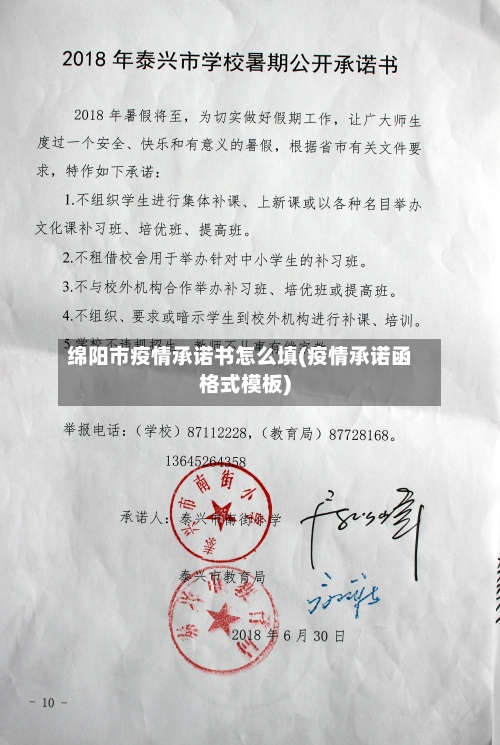 2018 年泰兴市学校暑期公开承诺书
2018 年暑假将至，为切实做好假期工作，让广大师生
度过一个安全、快乐和有意义的暑假，根据省市有关文件要
求，特作如下承诺：
1.不组织学生进行集体补课、上新课或以各种名目举办
文化课补习班、培优班、提高班。
2.不租借校舍用于举办针对中小学生的补习班。
3.不与校外机构合作举办补习班、培优班或提高班。
4.不组织、要求或暗示学生到校外机构进行补课、培训。
绵阳市疫情承诺书怎么填(疫情承诺函
格式模板)
举报电话：（学校）87112228，（教育局）87728168。
13645264358
承诺人：泰兴市南街小学
泰兴市教育局
2018 年 6 月 30 日
- 10 -